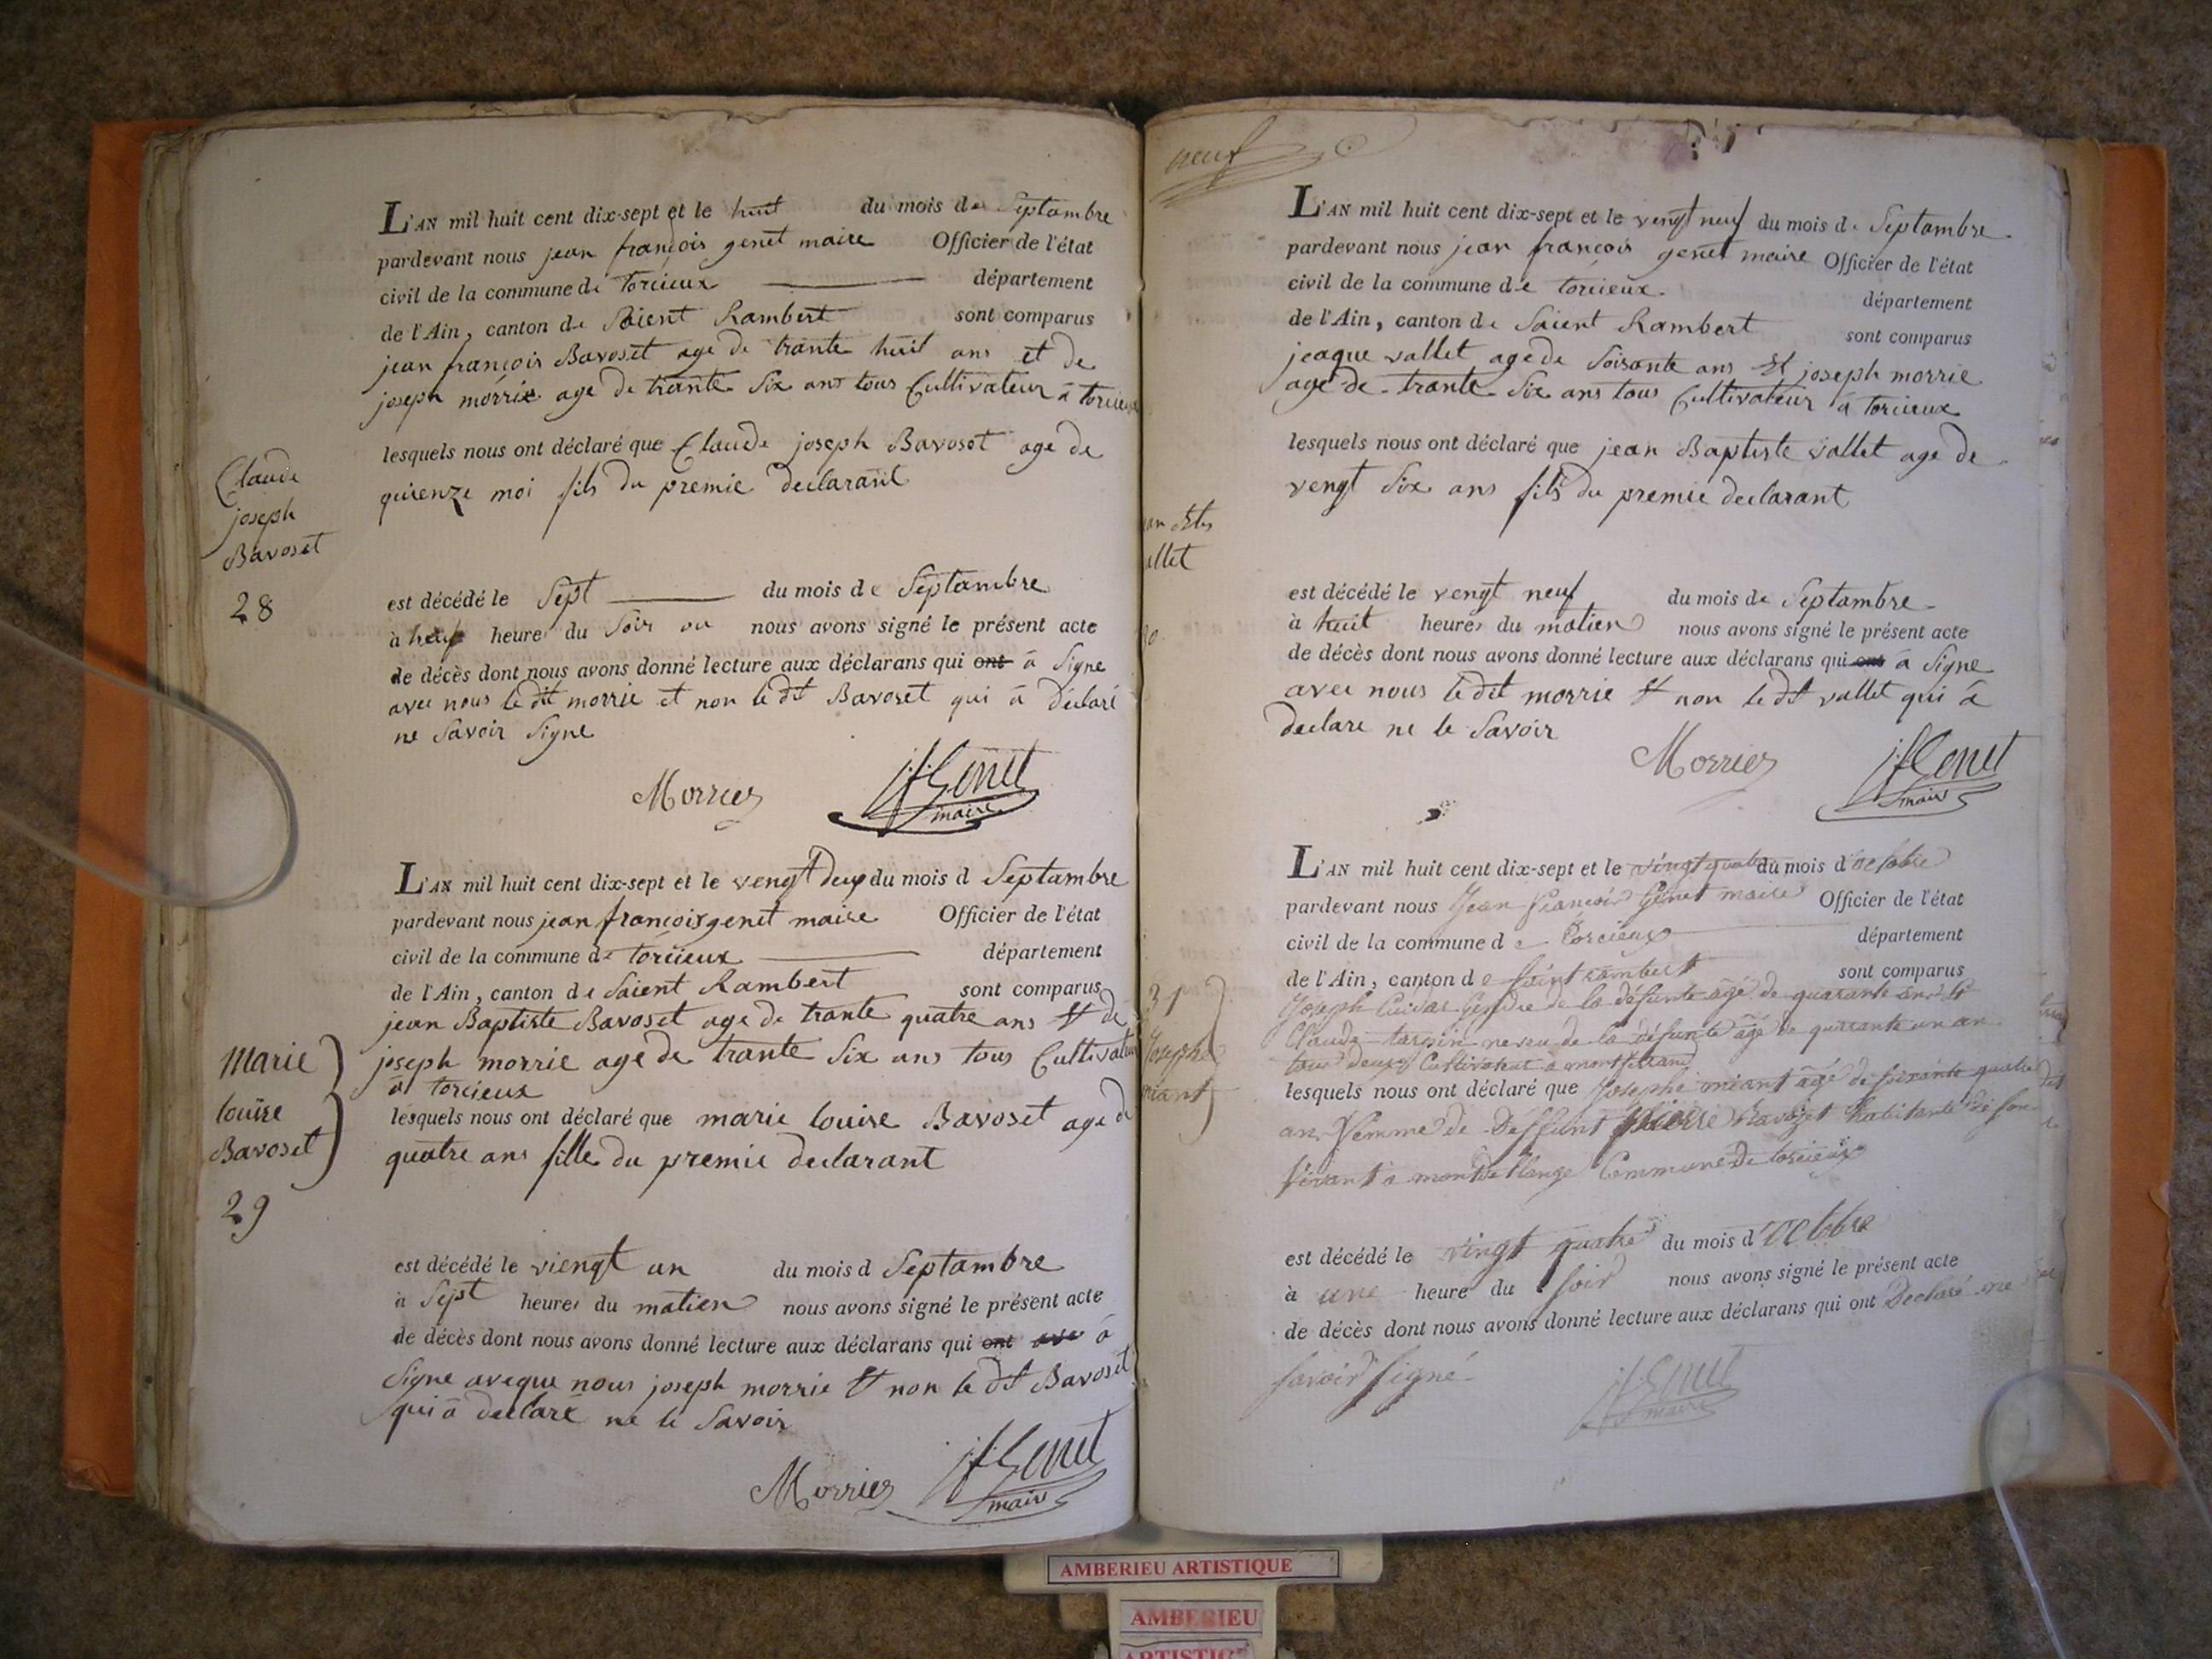 L'AN mil huit cent dix-sept et le huit du mois de Septambre
pardevant nous jean françois genet maire Officier de l'état
civil de la commune de torcieux département
de l'Ain, canton de Saient Rambert sont comparus
jean françois Bavoset age de trante huit ans et de
joseph morrie age de trante Six ans tous Cultivateur à torcieux
lesquels nous ont déclaré que Claude joseph Bavoset age de
quienze moi fils du premie declarant
Claude
joseph
Bavoset
28
est décédé le Sept du mois de Septambre
à heures du Soir nous avons signé le présent acte
de décès dont nous avons donné lecture aux déclarans qui ont à Signe
avec nous le dit morrie et non le dit Bavoset qui à déclaré
ne Savoir Signe
Morrier jfGenet
maire
L'AN mil huit cent dix-sept et le vengt deux du mois d Septambre
pardevant nous jean françois genet maire Officier de l'état
civil de la commune de torcieux département
de l'Ain, canton de Saient Rambert sont comparus
jean Baptiste Bavoset age de trante quatre ans et de
joseph morrie age de trante Six ans tous Cultivateur
à torcieux
lesquels nous ont déclaré que marie louise Bavoset age de
quatre ans fille du premie declarant
Marie
louise
Bavoset
29
est décédé le viengt un du mois d Septambre
à Sept heures du matien nous avons signé le présent acte
de décès dont nous avons donné lecture aux déclarans qui ont à
Signe aveque nous joseph morrie et non le dit Bavoset
qui à declare ne le Savoir
Morrier jfGenet
maire
neuf
L'AN mil huit cent dix-sept et le vengt neuf du mois de Septambre
pardevant nous jean françois genet maire Officier de l'état
civil de la commune de torcieux département
de l'Ain, canton de Saient Rambert sont comparus
jeaque vallet age de Soisante ans et joseph morrie
age de trante Six ans tous Cultivateur à torcieux
lesquels nous ont déclaré que jean Baptiste vallet age de
vengt Six ans fils du premie declarant
allet
est décédé le vengt neuf du mois de Septambre
à huit heures du matien nous avons signé le présent acte
de décès dont nous avons donné lecture aux déclarans qui ont à Signe
avec nous le dit morrie et non le dit vallet qui à
declare ne le Savoir
Morrier jfGenet
maire
L'AN mil huit cent dix-sept et le vingt quatre du mois d'octobre
pardevant nous Jean François Genet maire Officier de l'état
civil de la commune de torcieux département
de l'Ain, canton de Saint rambert sont comparus
Joseph Gendre de la défunte âgé de quarante ans et
Claude neveu de la défunte âgé de quarante un an
tous deux Cultivateur a montferrand
lesquels nous ont déclaré que Josephe miant âgé de soixante quatre
an Femme de Deffunt Pierre Bavozet habitante de son
vivant a Commune De torcieux
31
Josephe
miant
est décédé le vingt quatre du mois d'Octobre
à une heure du soir nous avons signé le présent acte
de décès dont nous avons donné lecture aux déclarans qui ont Declaré ne
savoir signé
jfGenet
maire
AMBERIEU ARTISTIQUE
AMBERIEU
ARTISTIQ